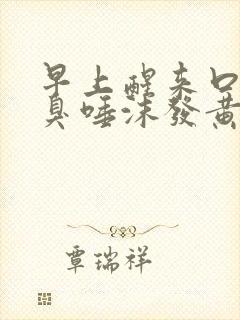 早上醒来口
臭唾沫發黃
覃瑞祥